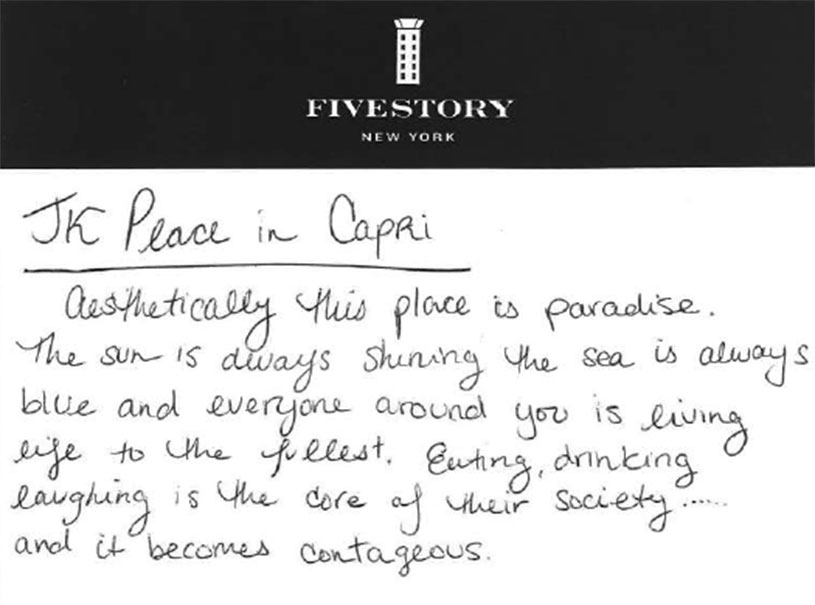 FIVESTORY
NEW YORK
JK Place in Capri
Aesthetically this place is paradise.
The sun is always shining the sea is always
blue and everyone around you is living
life to the fullest. Eating, drinking
laughing is the core of their society.....
and it becomes contageous.